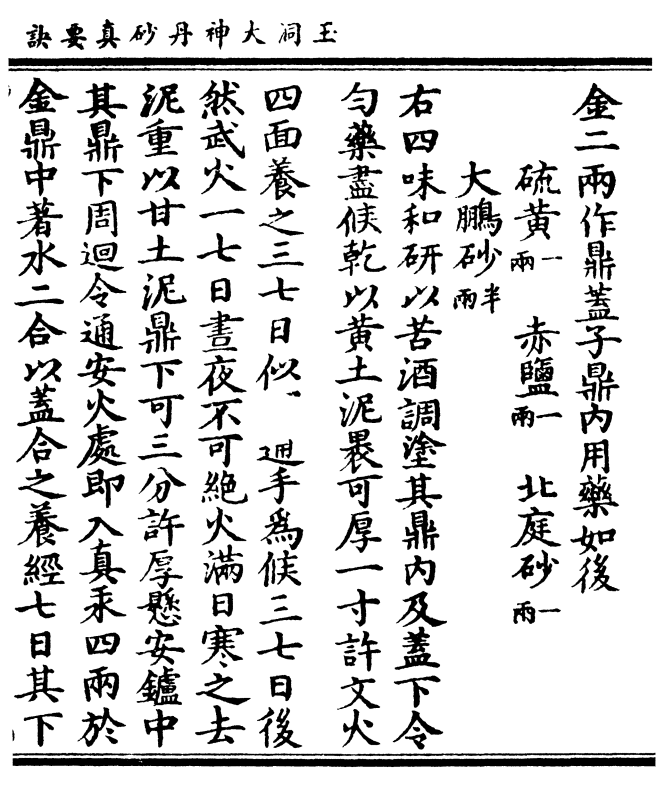 玉洞大神丹砂真要訣
金二兩作鼎蓋子鼎內用藥如後
硫黃一兩　赤鹽一兩　北庭砂一兩
大鵬砂半兩
右四味和研以苦酒調塗其鼎內及蓋下令
勻藥盡候乾以黃土泥褁可厚一寸許文火
四面養之三七日似、　通手爲候三七日後
然武火一七日晝夜不可絕火滿日寒之去
泥重以甘土泥鼎下可三分許厚懸安鑪中
其鼎下周迴令通安火處即入真汞四兩於
金鼎中著水二合以蓋合之養經七日其下